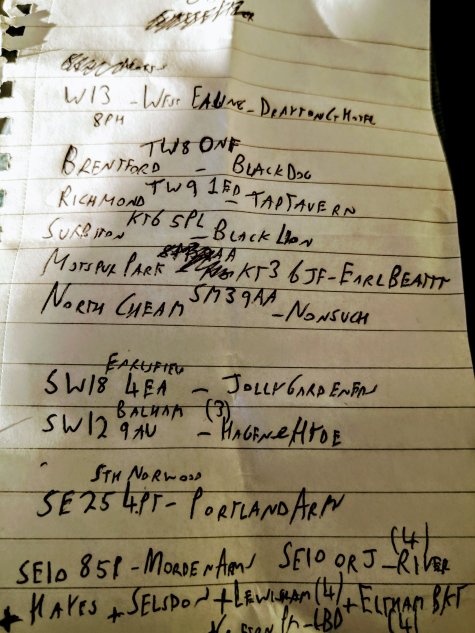 W13 - WEST EALING - DRAYTON CT HOTEL
8PM
TW8 0NF
BRENTFORD - BLACK DOG
TW9 1ED
RICHMOND - TAP TAVERN
KT6 5PL
SURBITON - BLACK LION
MOTSPUR PARK KT3 6JF - EARL BEATTY
SM3 9AA
NORTH CHEAM - NONSUCH
EARLSFIELD
SW18 4EA - JOLLY GARDENERS
BALHAM (3)
SW12 9AU - HAGEN & HYDE
STH NORWOOD
SE25 4PT - PORTLAND ARMS
(4)
SE10 8SP - MORDEN ARMS SE10 0RJ - RIVER
+ HAYES + SELSDON + LEWISHAM (4) + ELTHAM BKT
(4)